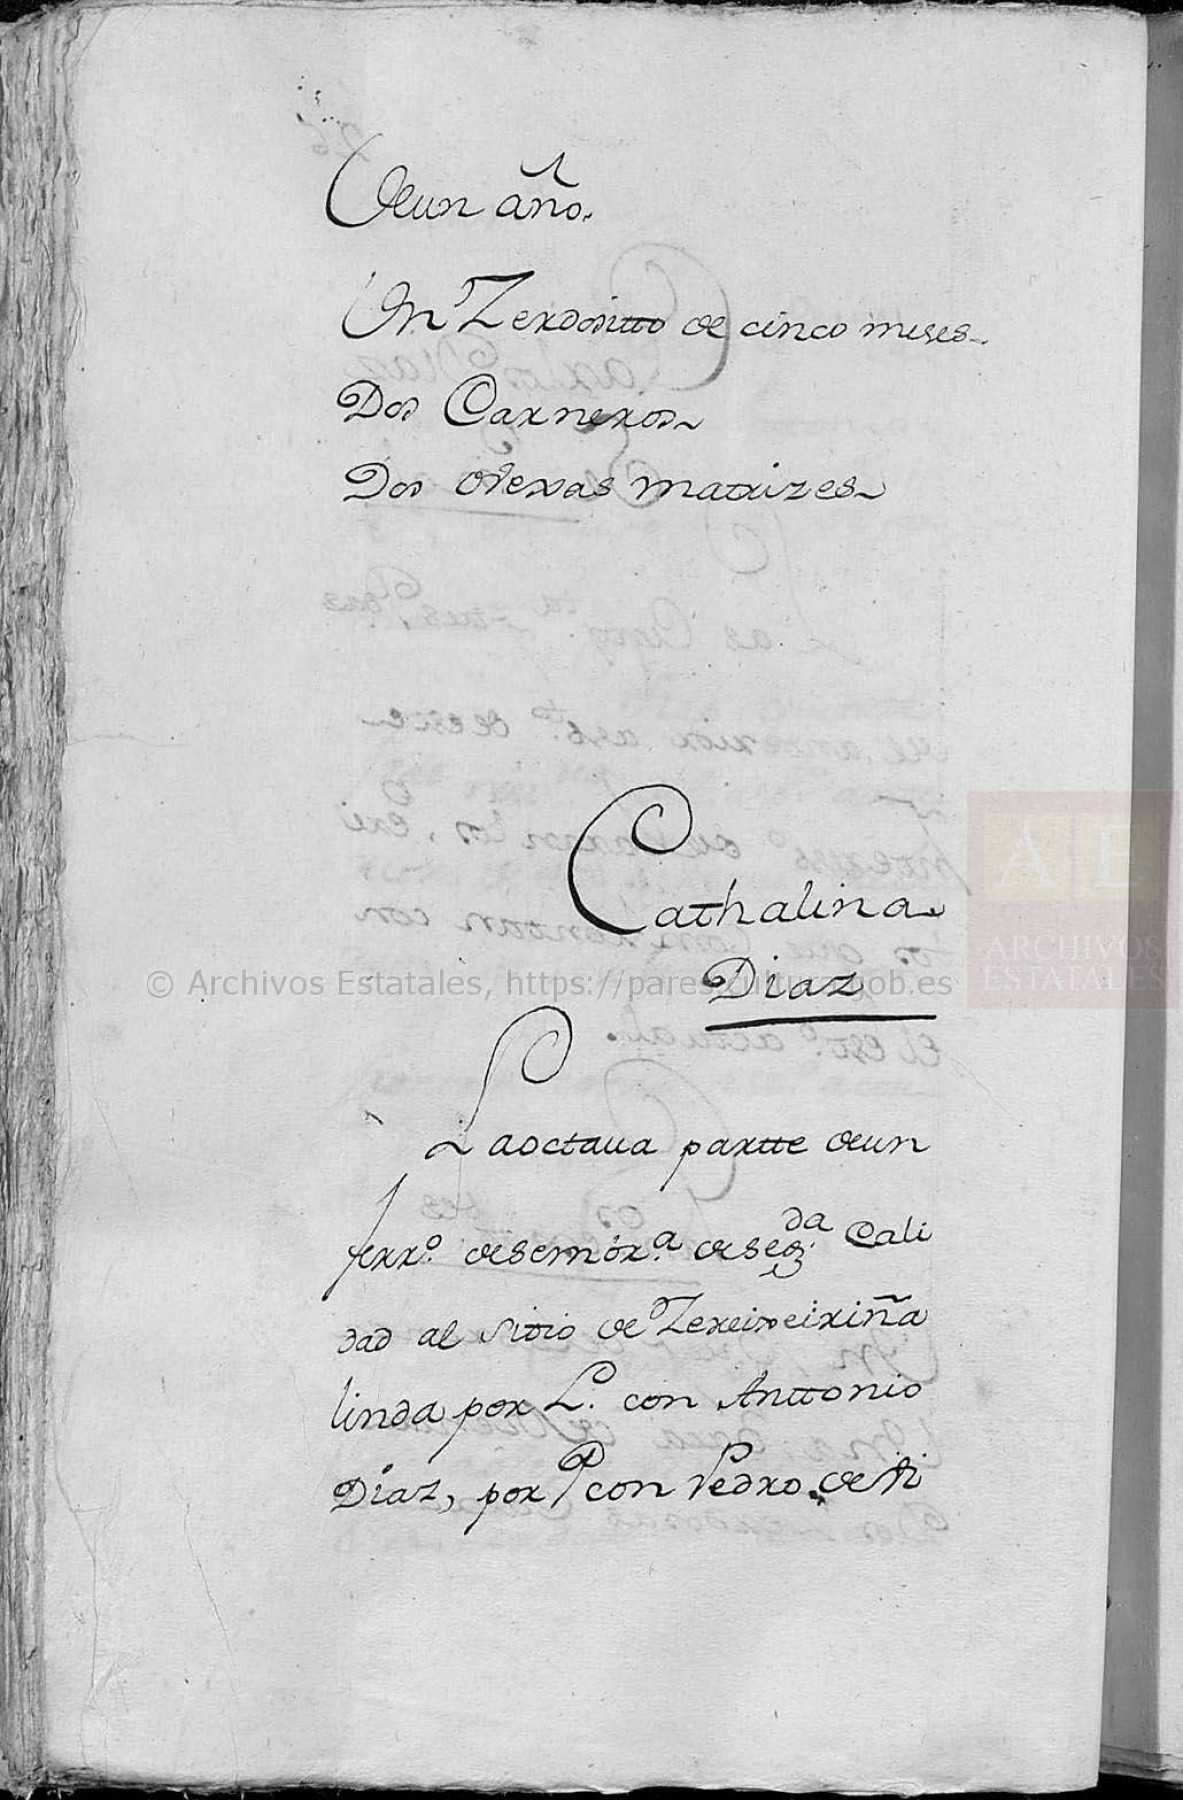 de un año.
Un Zerdositto de cinco meses
Dos Carneros
Dos obexas matrizes
Cathalina
Diaz
La octaua partte de un
ferr.º de sem.ór.ª de seg.da Cali
dad al sitio de
linda por L. con Anttonio
Diaz, por P con Pedro de Si
© Archivos Estatales, https://pares.cultura.gob.es
AE
ARCHIVOS
ESTATALES